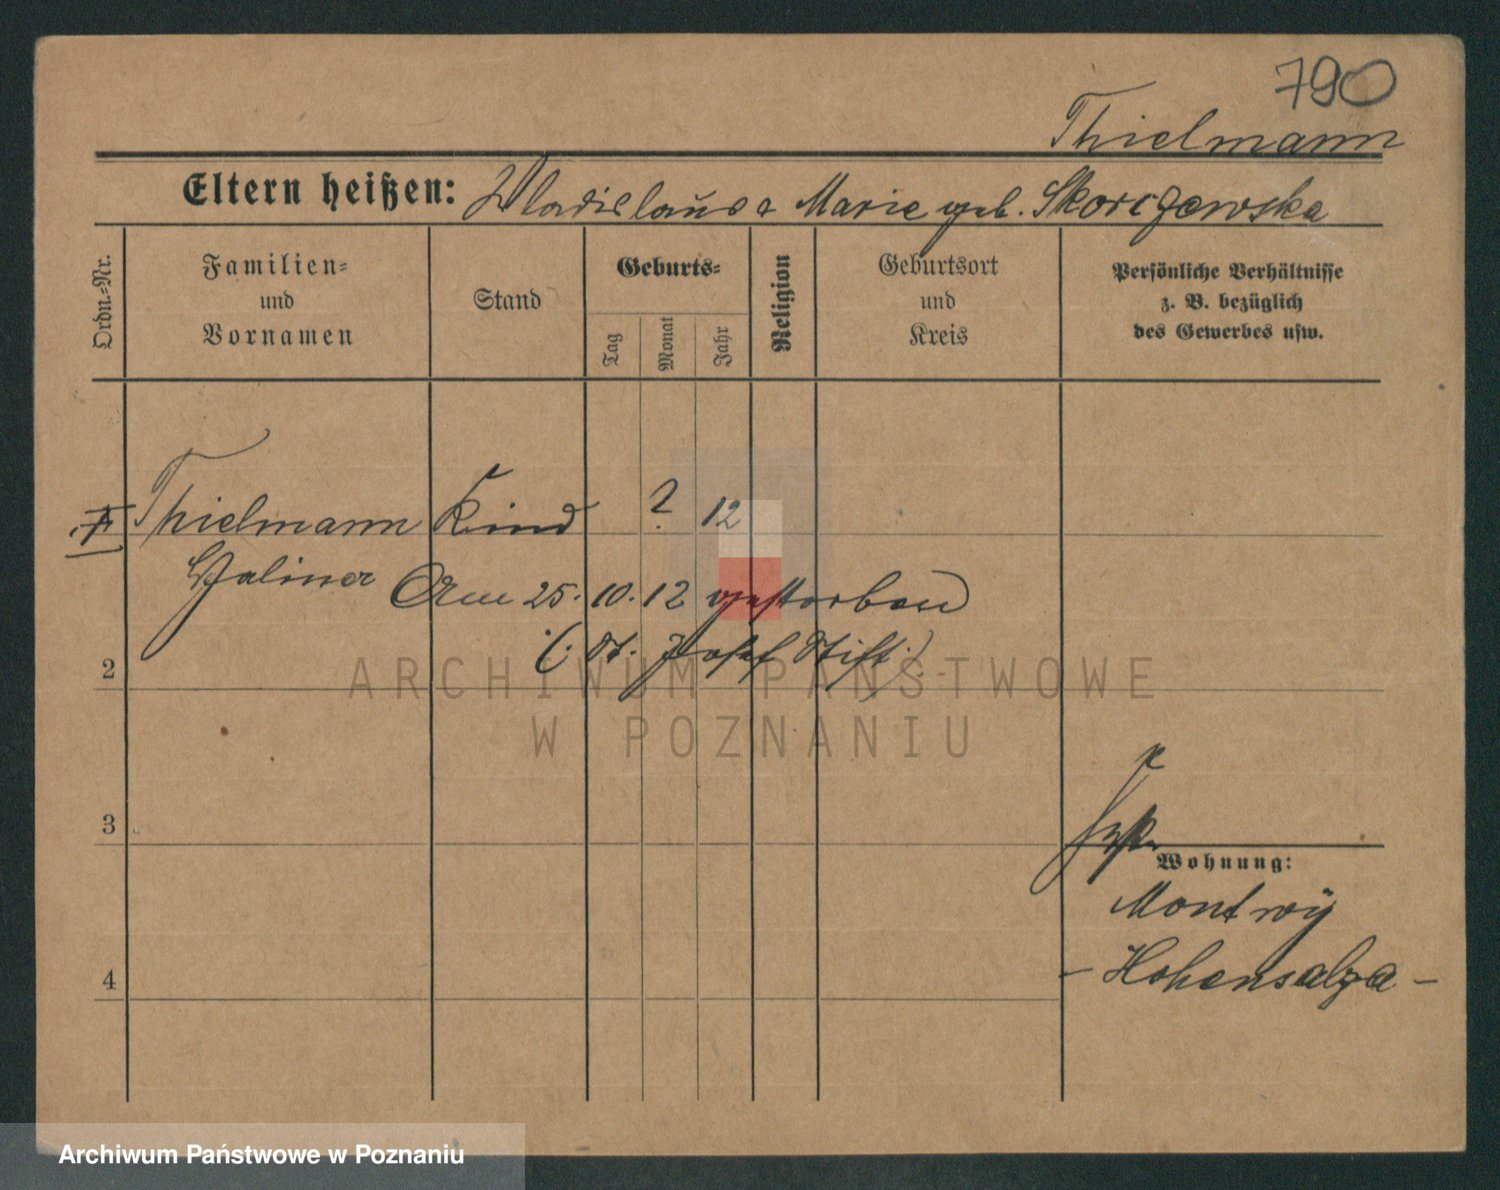 790
Thielmann
Eltern heißen: Wladislaus & Marie geb. Skorczewska
Ordn.-Nr.
Familien- und Vornamen
Stand
Geburts-
Tag
Monat
Jahr
Religion
Geburtsort und Kreis
Persönliche Verhältnisse z. B. bezüglich des Gewerbes usw.
Thielmann Kind ? 12
Am 25. 10. 12 gestorben
(: St. Josef Stift :)
2
ARCHIWUM PAŃSTWOWE
W POZNANIU
3
Wohnung:
Montwy
4
- Hohensalza -
Archiwum Państwowe w Poznaniu